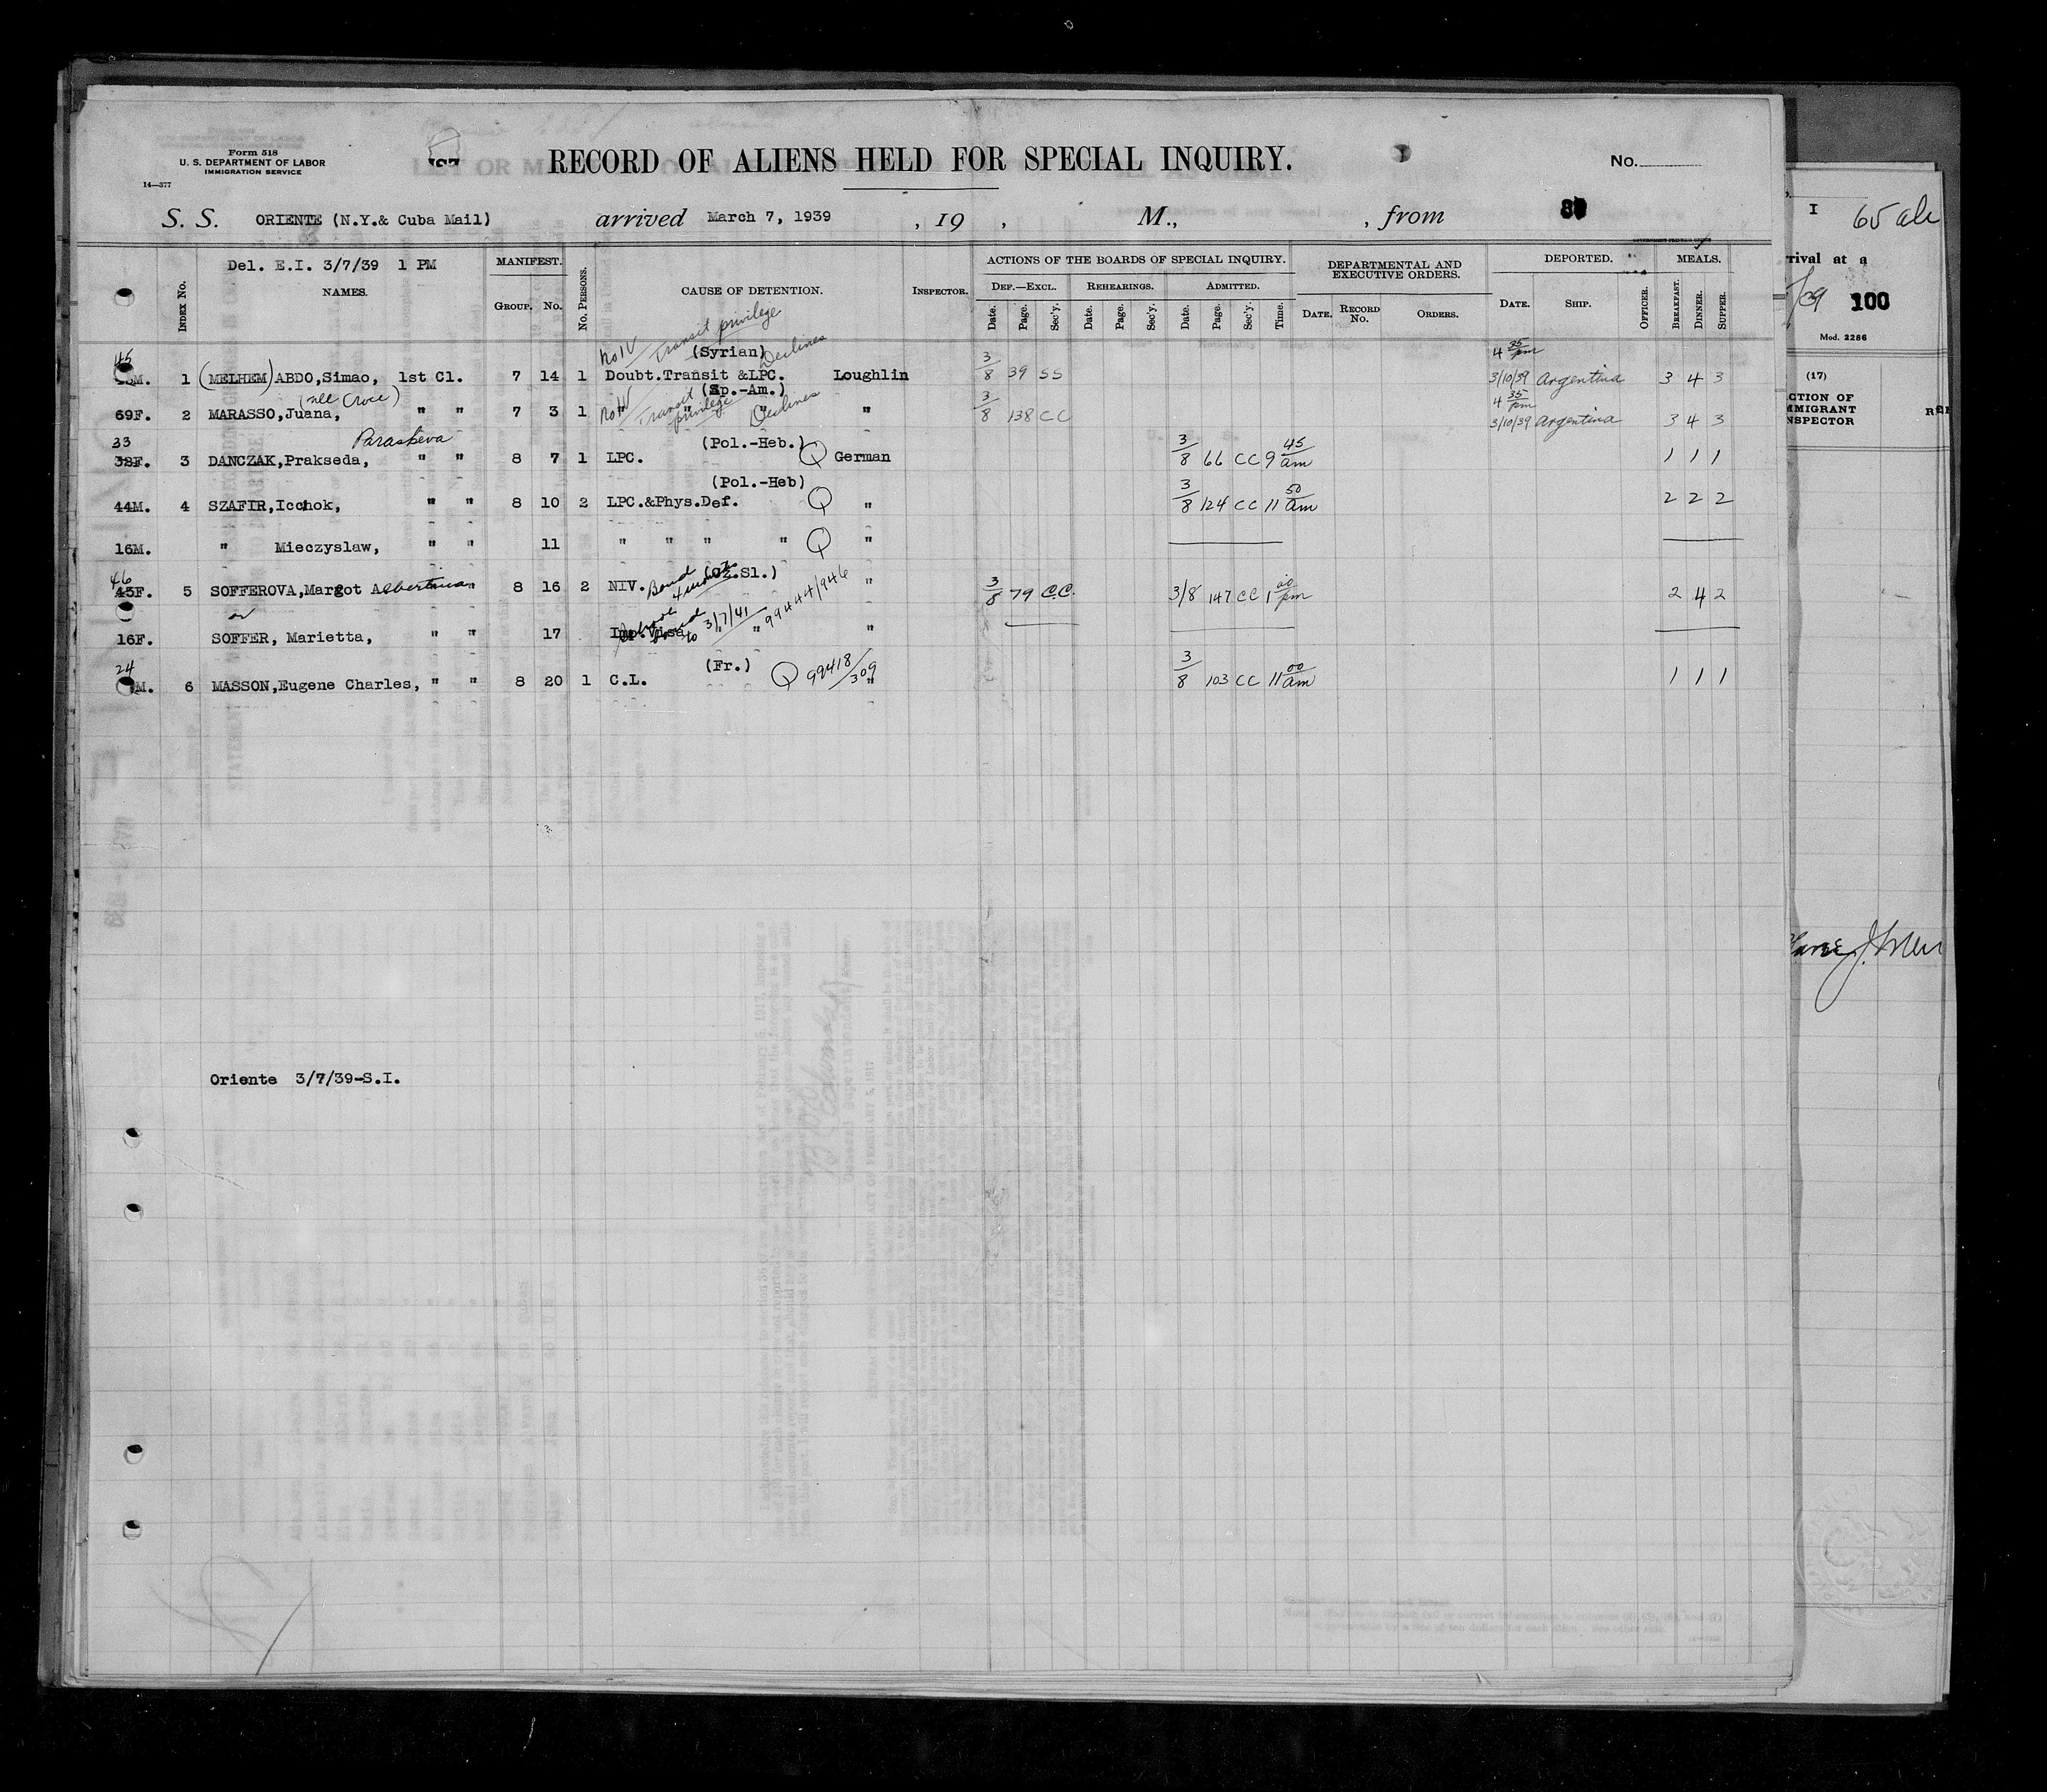 Form 518
U. S. DEPARTMENT OF LABOR
IMMIGRATION SERVICE
14—377
RECORD OF ALIENS HELD FOR SPECIAL INQUIRY.
No.
S. S. ORIENTE (N.Y.& Cuba Mail) arrived March 7, 1939 , 19 , M., , from
Del. E.I. 3/7/39 1 PM
INDEX No. NAMES. MANIFEST. GROUP. No. No. PERSONS. CAUSE OF DETENTION. INSPECTOR.
ACTIONS OF THE BOARDS OF SPECIAL INQUIRY. DEF.—EXCL. REHEARINGS. ADMITTED.
Date. Page. Sec'y. Date. Page. Sec'y. Date. Page. Sec'y. Time.
DEPARTMENTAL AND EXECUTIVE ORDERS. DATE. RECORD No. ORDERS.
DEPORTED. DATE. SHIP. OFFICER.
MEALS. BREAKFAST. DINNER. SUPPER.
No IV Transit privilege Declines
45 (Syrian) 4 35 pm
M. 1 (MELHEM) ABDO,Simao, 1st Cl. 7 14 1 Doubt.Transit &LPC. Loughlin 3/8 39 SS 3/10/39 Argentina 3 4 3
(nee Croce) (Sp.-Am.) 4 35 pm
69F. 2 MARASSO,Juana, " " 7 3 1 " " " " 3/8 138 CC 3/10/39 Argentina 3 4 3
No IV Transit privilege Declines
33 Paraskeva (Pol.-Heb.)
38F. 3 DANCZAK,Prakseda, " " 8 7 1 LPC. Q German 3/8 66 CC 9 45 am 1 1 1
(Pol.-Heb)
44M. 4 SZAFIR,Icchok, " " 8 10 2 LPC.&Phys.Def. Q " 3/8 124 CC 11 50 am 2 2 2
16M. " Mieczyslaw, " " 11 " " " " Q "
46 Bond (Cz.Sl.)
45F. 5 SOFFEROVA,Margot Albertina " 8 16 2 NIV. " 3/8 79 C.C. 3/8 147 CC 1 00 pm 2 4 2
or
16F. SOFFER, Marietta, " " 17 Imp.Visa to 3/7/41 " 99444/946 "
24 (Fr.)
M. 6 MASSON,Eugene Charles, " " 8 20 1 C.L. Q 99418/309 " 3/8 103 CC 11 00 am 1 1 1
Oriente 3/7/39-S.I.
I
65
rrival at a
/39 100
Mod. 2286
(17)
CTION OF
MMIGRANT
NSPECTOR